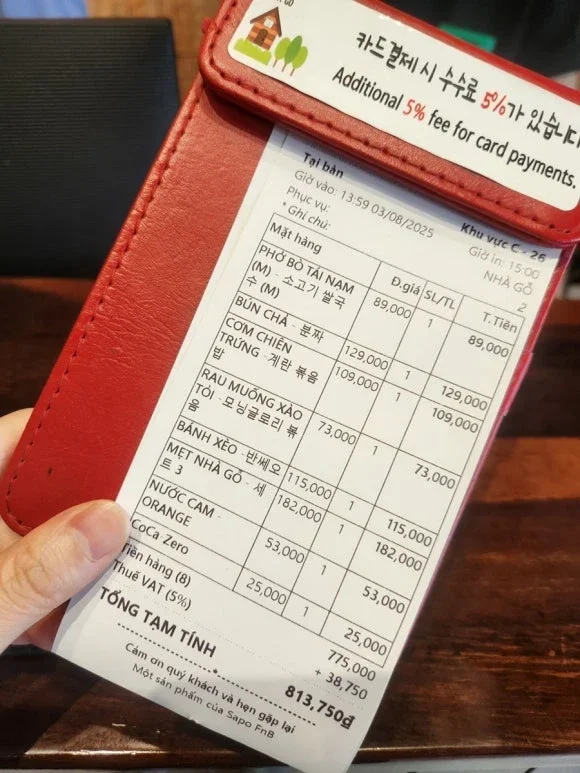 카드결제 시 수수료 5%가 있습니다
Additional 5% fee for card payments.
Tại bàn
Khu vực C - 26
Giờ vào: 13:59 03/08/2025
Giờ in: 15:00
Phục vụ:
NHÀ GỖ
* Ghi chú:
2
Mặt hàng Đ.giá SL/TL T.Tiền
PHỞ BÒ TÁI NAM
(M) - 소고기 쌀국
수 (M)
89,000 1 89,000
BÚN CHẢ - 분짜
129,000 1 129,000
CƠM CHIÊN
TRỨNG - 계란 볶음
밥
109,000 1 109,000
RAU MUỐNG XÀO
TỎI - 모닝글로리 볶
음
73,000 1 73,000
BÁNH XÈO - 반쎄오
115,000 1 115,000
MẸT NHÀ GỖ - 세
트 3
182,000 1 182,000
NƯỚC CAM -
ORANGE
53,000 1 53,000
CoCa Zero
25,000 1 25,000
Tiền hàng (8) 775,000
Thuế VAT (5%) + 38,750
TỔNG TẠM TÍNH 813,750₫
Cảm ơn quý khách và hẹn gặp lại
Một sản phẩm của Sapo FnB